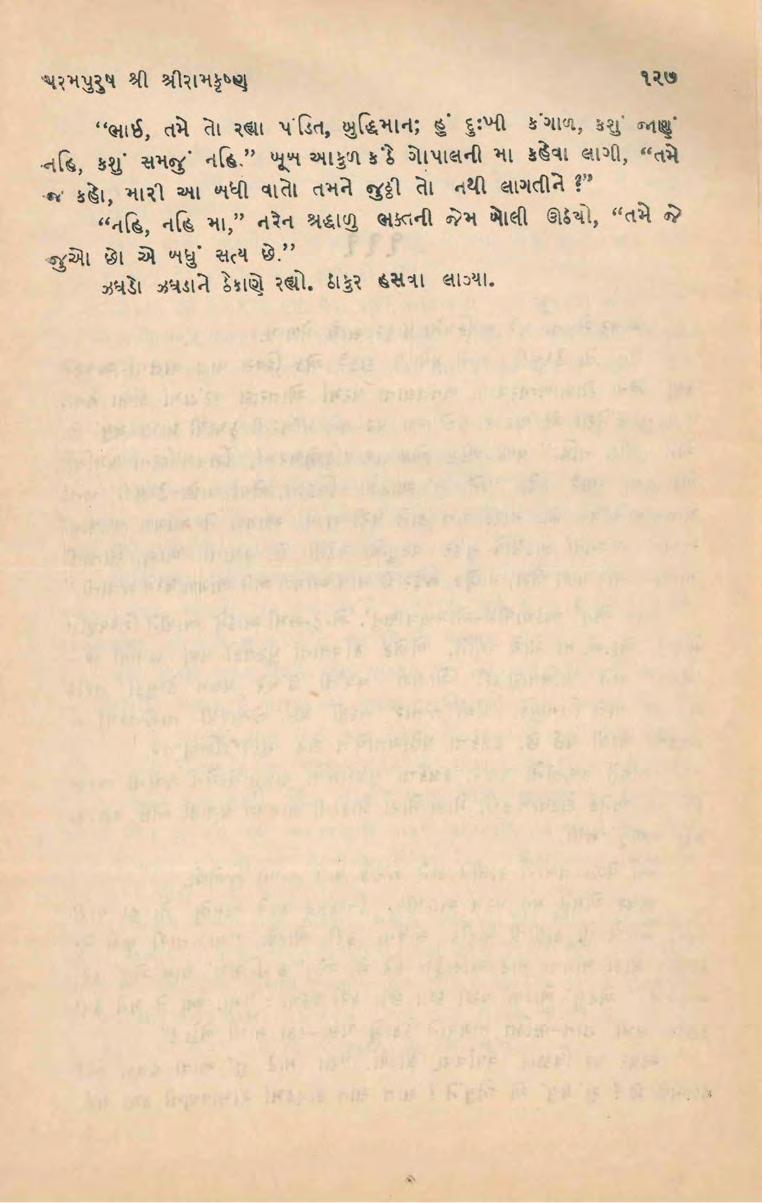 પરમપુરુષ શ્રી શ્રીરામકૃષ્ણ ૧૨૭
“ભાઈ, તમે તો રહ્યા પંડિત, બુદ્ધિમાન; હું દુઃખી કંગાળ, કશું જાણું
નહિ, કશું સમજું નહિ.” ખૂબ આકુળ કંઠે ગોપાલની મા કહેવા લાગી, “તમે
જ કહો, મારી આ બધી વાતો તમને જુઠ્ઠી તો નથી લાગતીને ?”
“નહિ, નહિ મા,” નરેન શ્રદ્ધાળુ ભક્તની જેમ બોલી ઊઠયો, “તમે જે
જુઓ છો એ બધું સત્ય છે.”
ઝઘડો ઝઘડાને ઠેકાણે રહ્યો. ઠાકુર હસવા લાગ્યા.